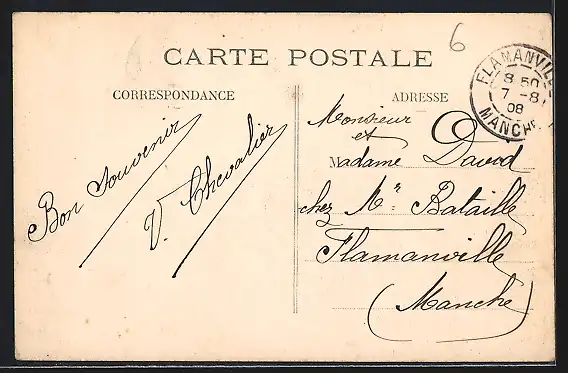 6
CARTE POSTALE
CORRESPONDANCE
ADRESSE
FLAMANVILLE
8 50
7 - 8
08
MANCHE
Bon Souvenir
V. Chevalier
Monsieur
et
Madame David
chez Mr. Bataille
Flamanville
(Manche)